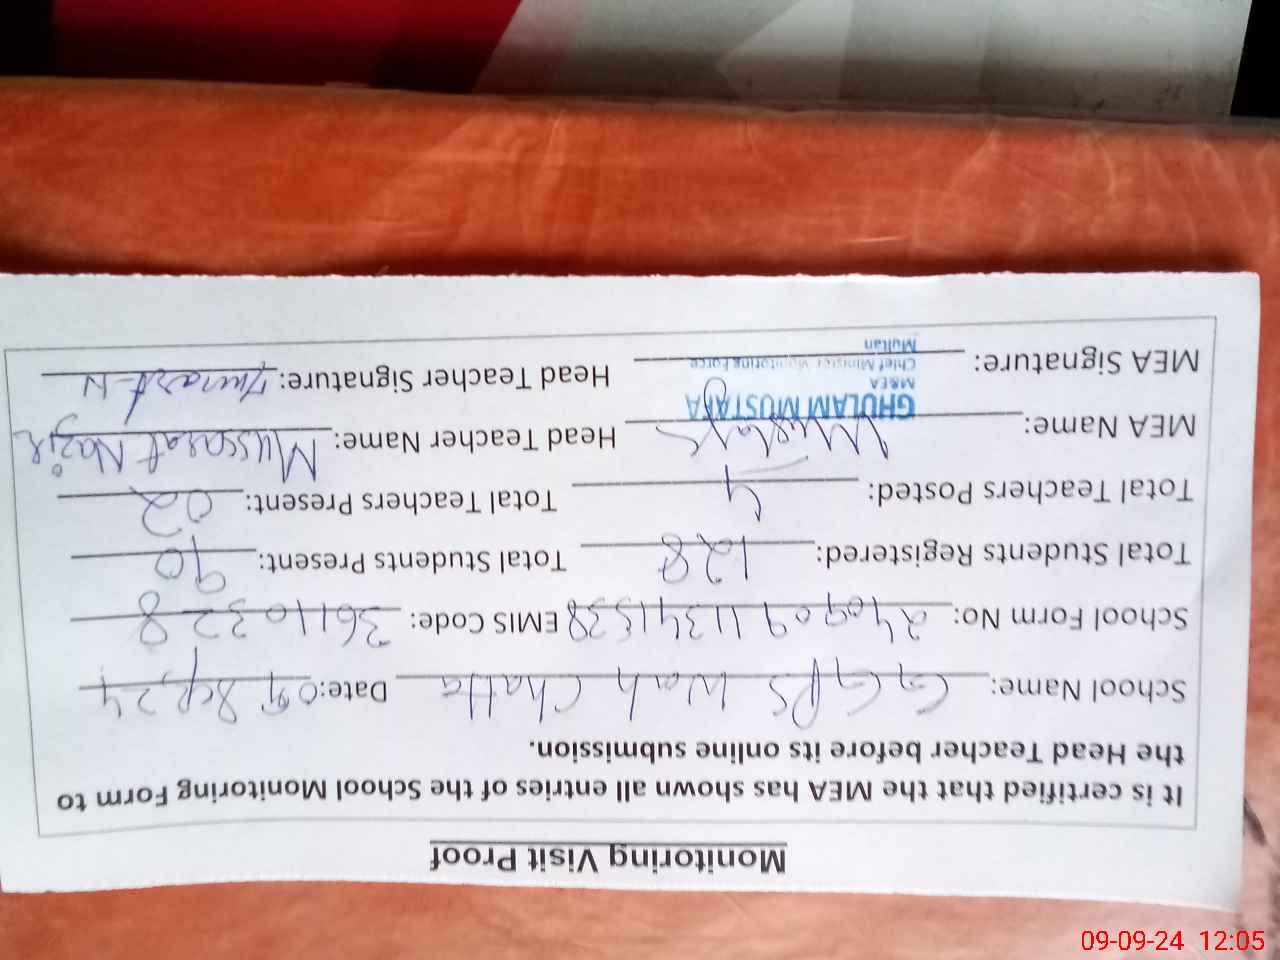 Monitoring Visit Proof
It is certified that the MEA has shown all entries of the School Monitoring Form to
the Head Teacher before its online submission.
School Name: GGPS Wah Chatta Date: 09 Sep, 24
School Form No: 24090911341538 EMIS Code: 36110328
Total Students Registered: 128 Total Students Present: 90
Total Teachers Posted: 4 Total Teachers Present: 02
MEA Name: GHULAM MUSTAFA Head Teacher Name: Mussarat Nazir
M&EA
Chief Minister Monitoring Force
Multan
MEA Signature: Head Teacher Signature:
09-09-24 12:05